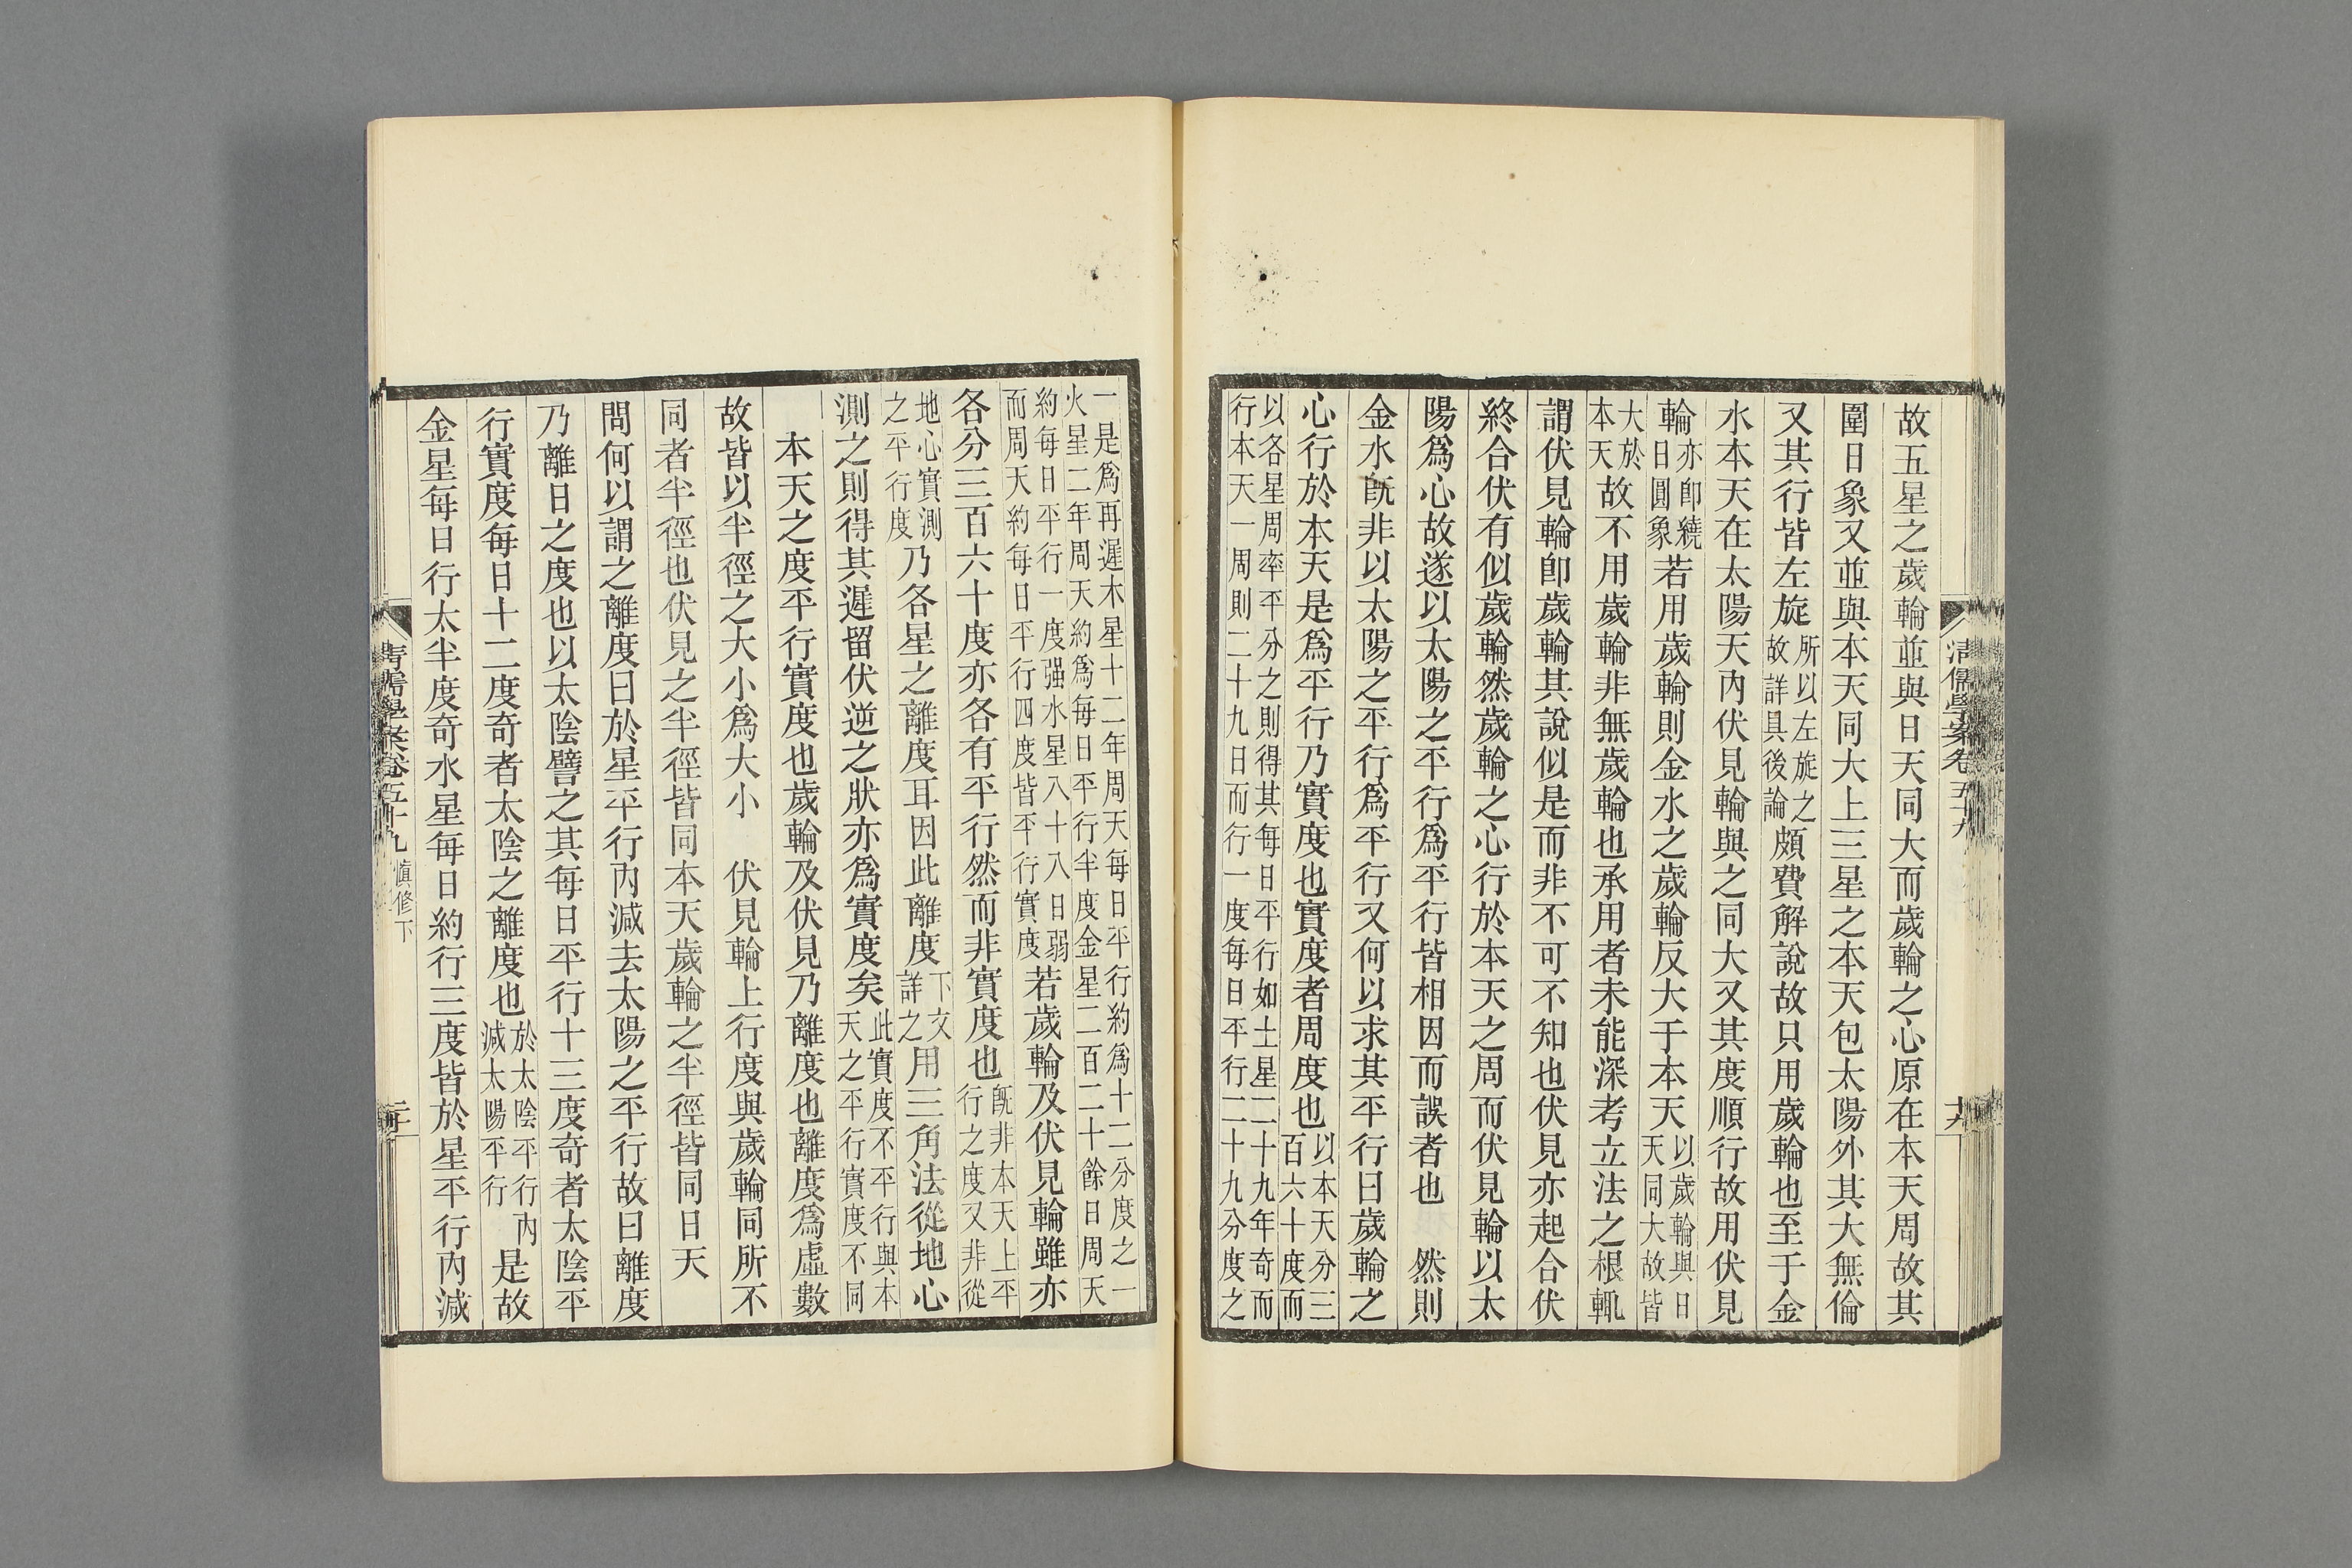 清儒學案卷五十九
十九
故五星之歲輪並與日天同大而歲輪之心原在本天周故其
圍日象又並與本天同大上三星之本天包太陽外其大無倫
又其行皆左旋所以左旋之故詳具後論頗費解說故只用歲輪也至于金
水本天在太陽天內伏見輪與之同大又其度順行故用伏見
輪亦卽繞日圓象若用歲輪則金水之歲輪反大于本天以歲輪與日天同大故皆
大於本天故不用歲輪非無歲輪也承用者未能深考立法之根輒
謂伏見輪卽歲輪其說似是而非不可不知也伏見亦起合伏
終合伏有似歲輪然歲輪之心行於本天之周而伏見輪以太
陽爲心故遂以太陽之平行爲平行皆相因而誤者也 然則
金水旣非以太陽之平行爲平行又何以求其平行曰歲輪之
心行於本天是爲平行乃實度也實度者周度也以本天分三百六十度而
以各星周率平分之則得其每日平行如土星二十九年奇而行本天一周則二十九日而行一度每日平行二十九分度之
一是爲再遲木星十二年周天每日平行約爲十二分度之一火星二年周天約爲每日平行半度金星二百二十餘日周天
約每日平行一度强水星八十八日弱而周天約每日平行四度皆平行實度若歲輪及伏見輪雖亦
各分三百六十度亦各有平行然而非實度也旣非本天上平行之度又非從
地心實測之平行度乃各星之離度耳因此離度下文詳之用三角法從地心
測之則得其遲留伏逆之狀亦爲實度矣此實度不平行與本天之平行實度不同
本天之度平行實度也歲輪及伏見乃離度也離度爲虛數
故皆以半徑之大小爲大小 伏見輪上行度與歲輪同所不
同者半徑也伏見之半徑皆同本天歲輪之半徑皆同日天
問何以謂之離度曰於星平行內減去太陽之平行故曰離度
乃離日之度也以太陰譬之其每日平行十三度奇者太陰平
行實度每日十二度奇者太陰之離度也於太陰平行內減太陽平行是故
金星每日行太半度奇水星每日約行三度皆於星平行內減
清儒學案卷五十九 愼修下
二十